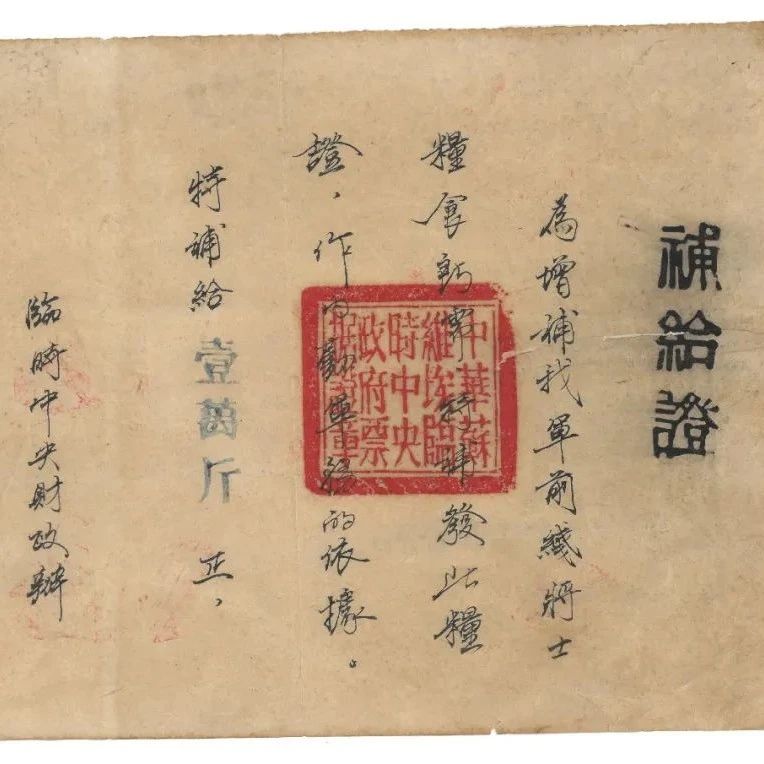 補給證
為增補我軍前綫將士
糧食所需特發此糧
證，作軍的依據。
特補給壹萬斤正，
臨時中央財政辦
中華蘇
維埃臨
時中央
政府票
据證章